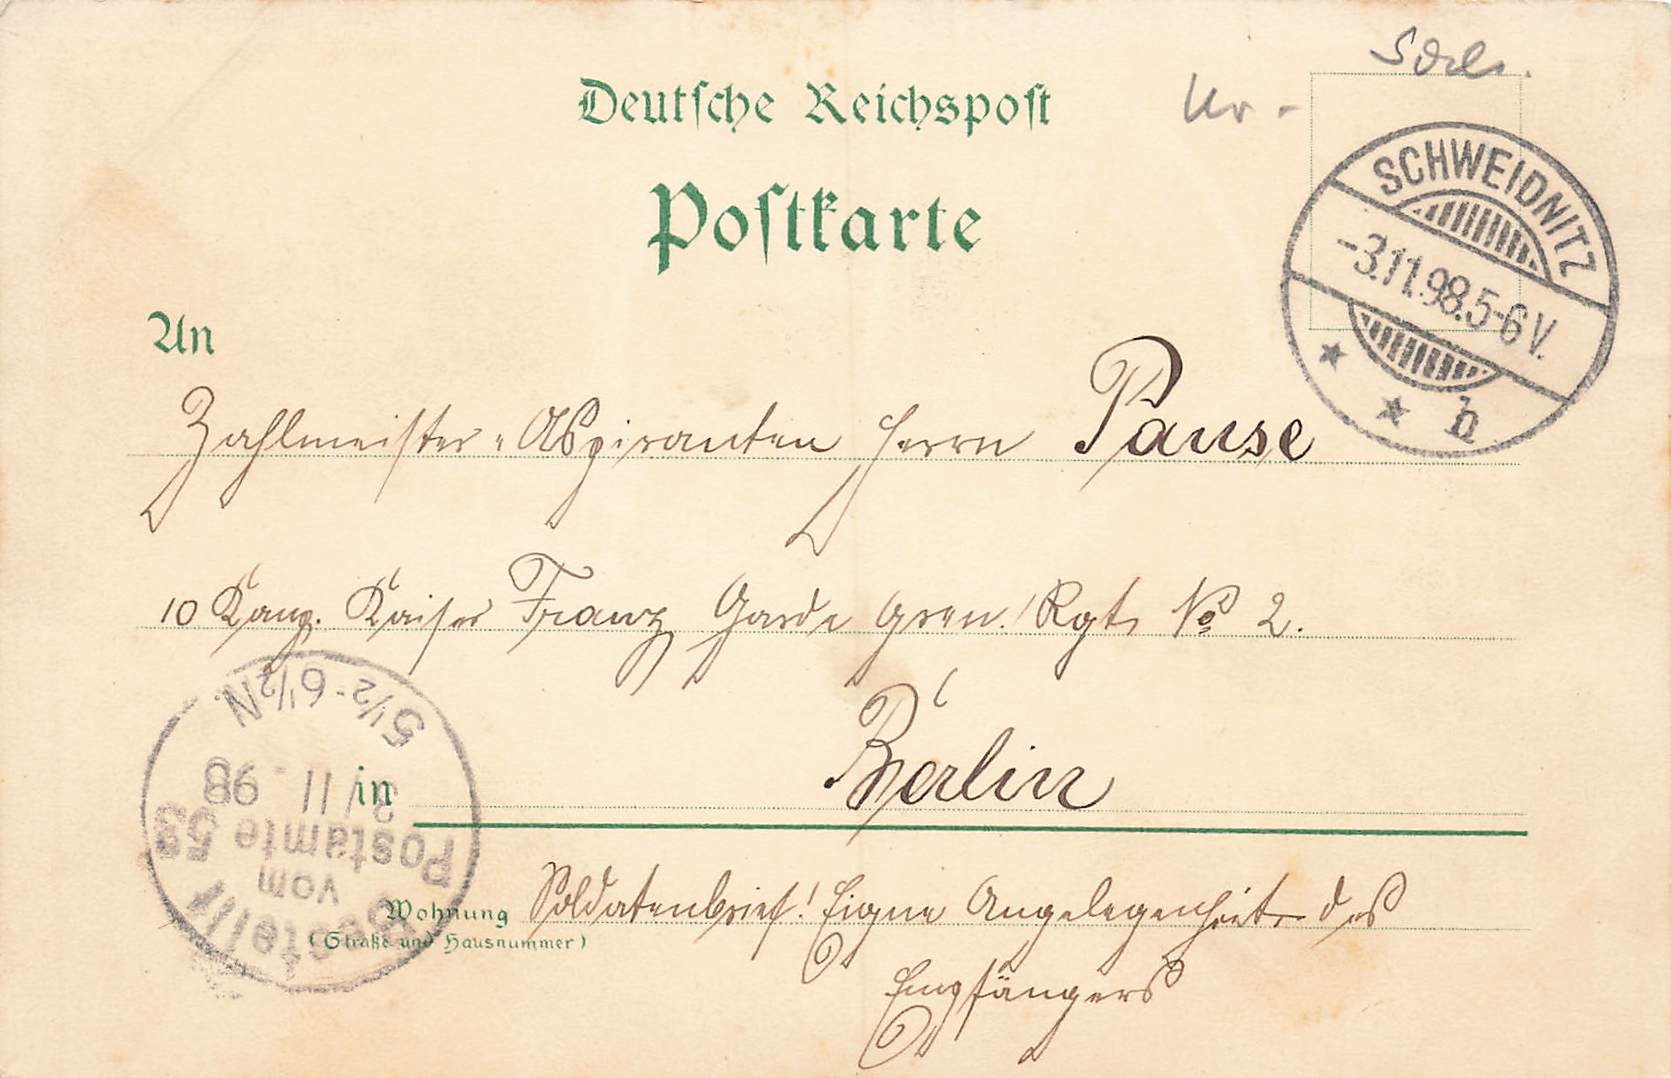 Deutsche Reichspost
Postkarte
SCHWEIDNITZ
-3.11.98.5-6V.
* * h
An
Zahlmeister-Aspiranten Herrn Pause
10 Komp. Kaiser Franz Garde Gren. Rgt. No 2.
5½-6½N
3/11.98
Postamte 53
vom
Bestellt
in Berlin
Wohnung Soldatenbrief! Eigne Angelegenheit des
(Straße und Hausnummer)
Empfängers